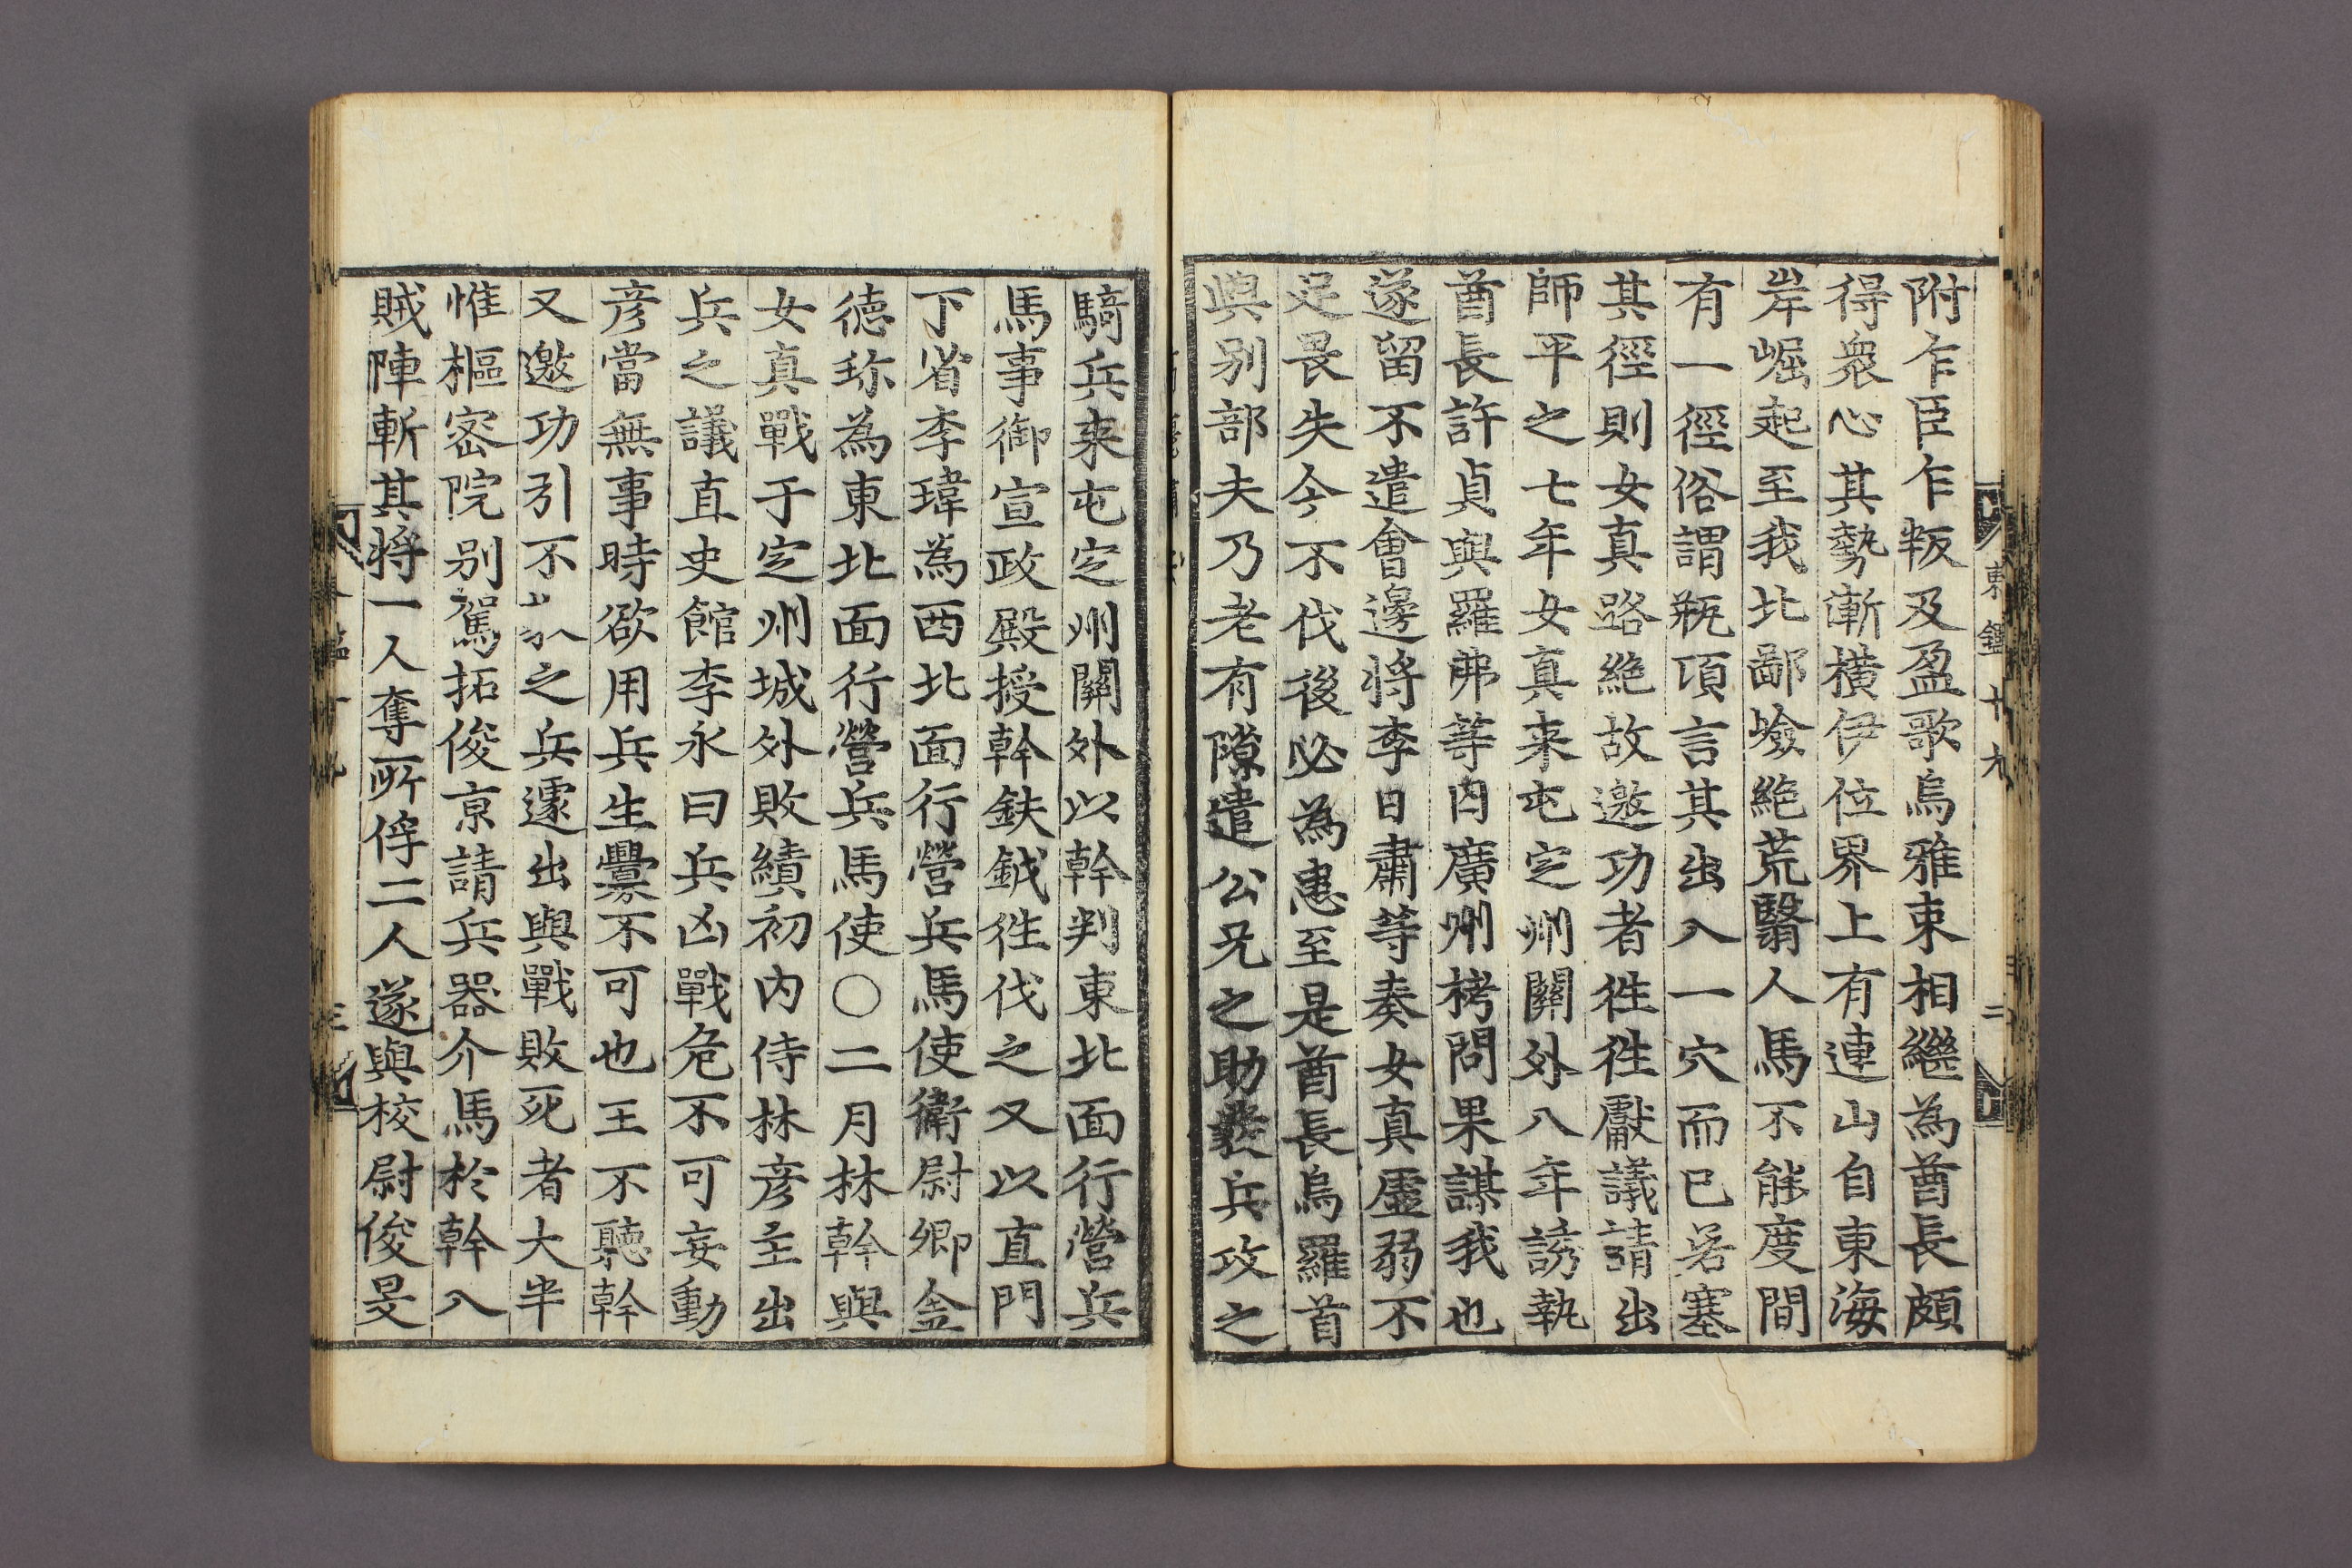 附乍臣乍叛及盈歌烏雅束相繼為酋長頗
得衆心其勢漸橫伊位界上有連山自東海
岸崛起至我北鄙險絶荒翳人馬不能度間
有一徑俗謂瓶項言其出入一穴而已若塞
其徑則女真路絶故邀功者徃徃獻議請出
師平之七年女真来屯定州關外八年誘執
酋長許貞與羅弗等囚廣州栲問果謀我也
遂留不遣會邊將李日肅等奏女真虛弱不
足畏失今不伐後必為患至是酋長烏羅首
與别部夫乃老有隙遣公兄之助發兵攻之
騎兵来屯定州關外以幹判東北面行營兵
馬事御宣政殿授幹鈇鉞徃伐之又以直門
下省李瑋為西北面行營兵馬使衛尉卿金
德珎為東北面行營兵馬使○二月林幹與
女真戰于定州城外敗績初内侍林彦主出
兵之議直史館李永曰兵凶戰危不可妄動
彦當無事時欲用兵生釁不可也王不聽幹
又邀功引不之兵遽出與戰敗死者大半
惟樞密院别駕拓俊京請兵器介馬於幹入
賊陣斬其將一人奪所俘二人遂與校尉俊旻
東鑑十九
二
三